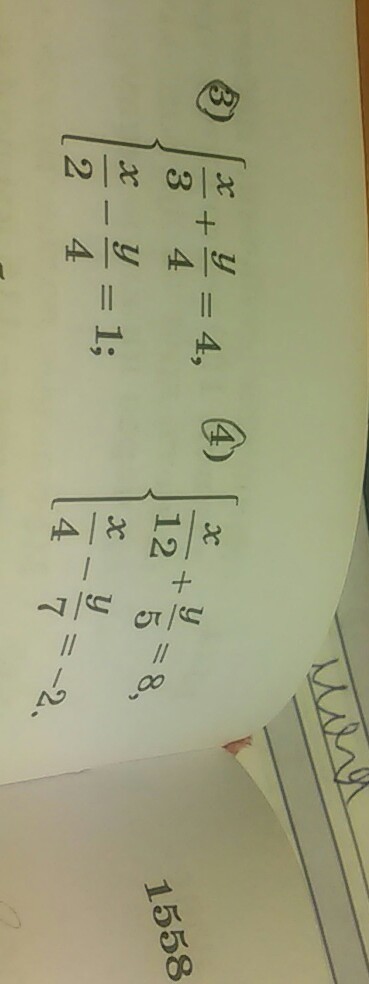 3) { x/3 + y/4 = 4,
x/2 - y/4 = 1;
4) { x/12 + y/5 = 8,
x/4 - y/7 = -2.
1558